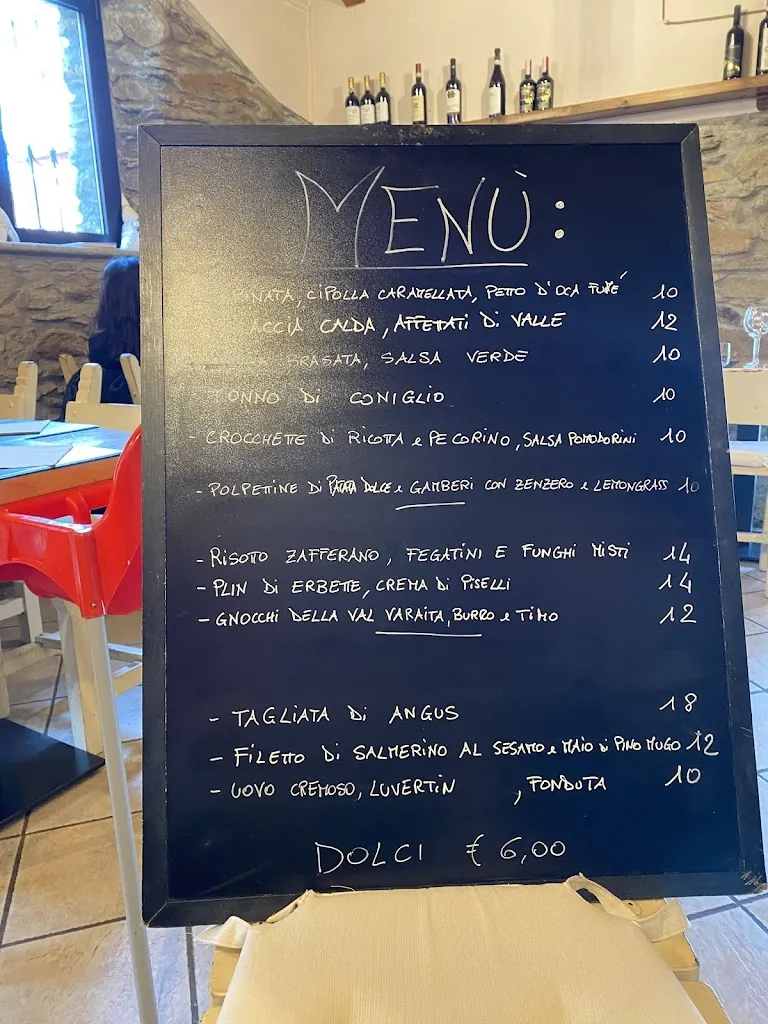 MENÙ:
CIPOLLA CARAMELLATA, PETTO D'OCA FUMÉ 10
CALDA, AFFETTATI DI VALLE 12
BRASATA, SALSA VERDE 10
TONNO DI CONIGLIO 10
- CROCCHETTE DI RICOTTA e PECORINO, SALSA POMODORINI 10
- POLPETTINE DI PATATA DOLCE e GAMBERI CON ZENZERO e LEMONGRASS 10
- RISOTTO ZAFFERANO, FEGATINI E FUNGHI MISTI 14
- PLIN DI ERBETTE, CREMA DI PISELLI 14
- GNOCCHI DELLA VAL VARAITA, BURRO e TIMO 12
- TAGLIATA DI ANGUS 18
- FILETTO DI SALMERINO AL SESAMO e MAIO DI PINO MUGO 12
- UOVO CREMOSO, LUVERTIN , FONDUTA 10
DOLCI € 6,00